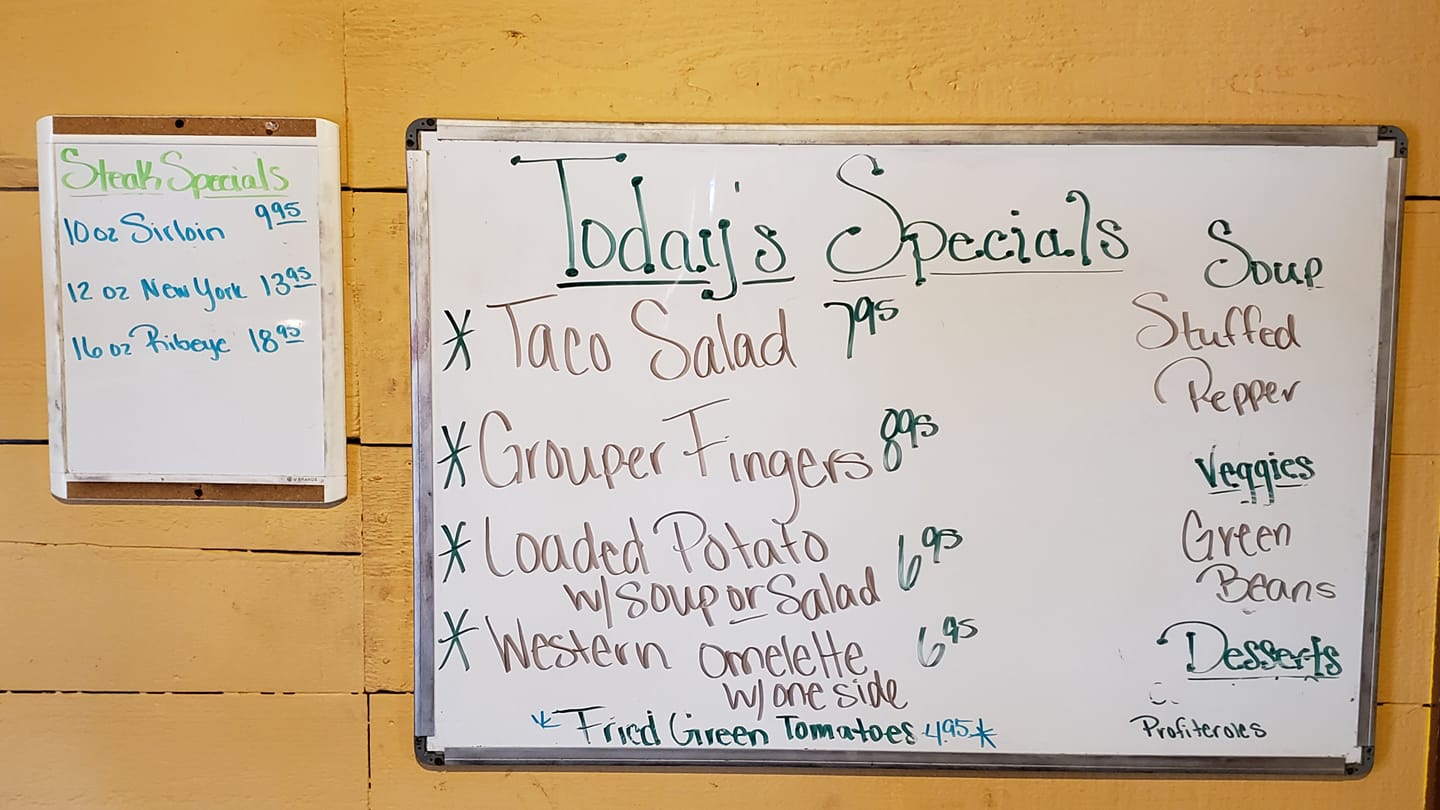 Steak Specials
10 oz Sirloin 9.95
12 oz New York 13.95
16 oz Ribeye 18.95
Today's Specials
* Taco Salad 7.95
* Grouper Fingers 8.95
* Loaded Potato
w/ soup or Salad 6.95
* Western omelette 6.95
w/ one side
* Fried Green Tomatoes 4.95 *
Soup
Stuffed
Pepper
Veggies
Green
Beans
Desserts
Profiteroles